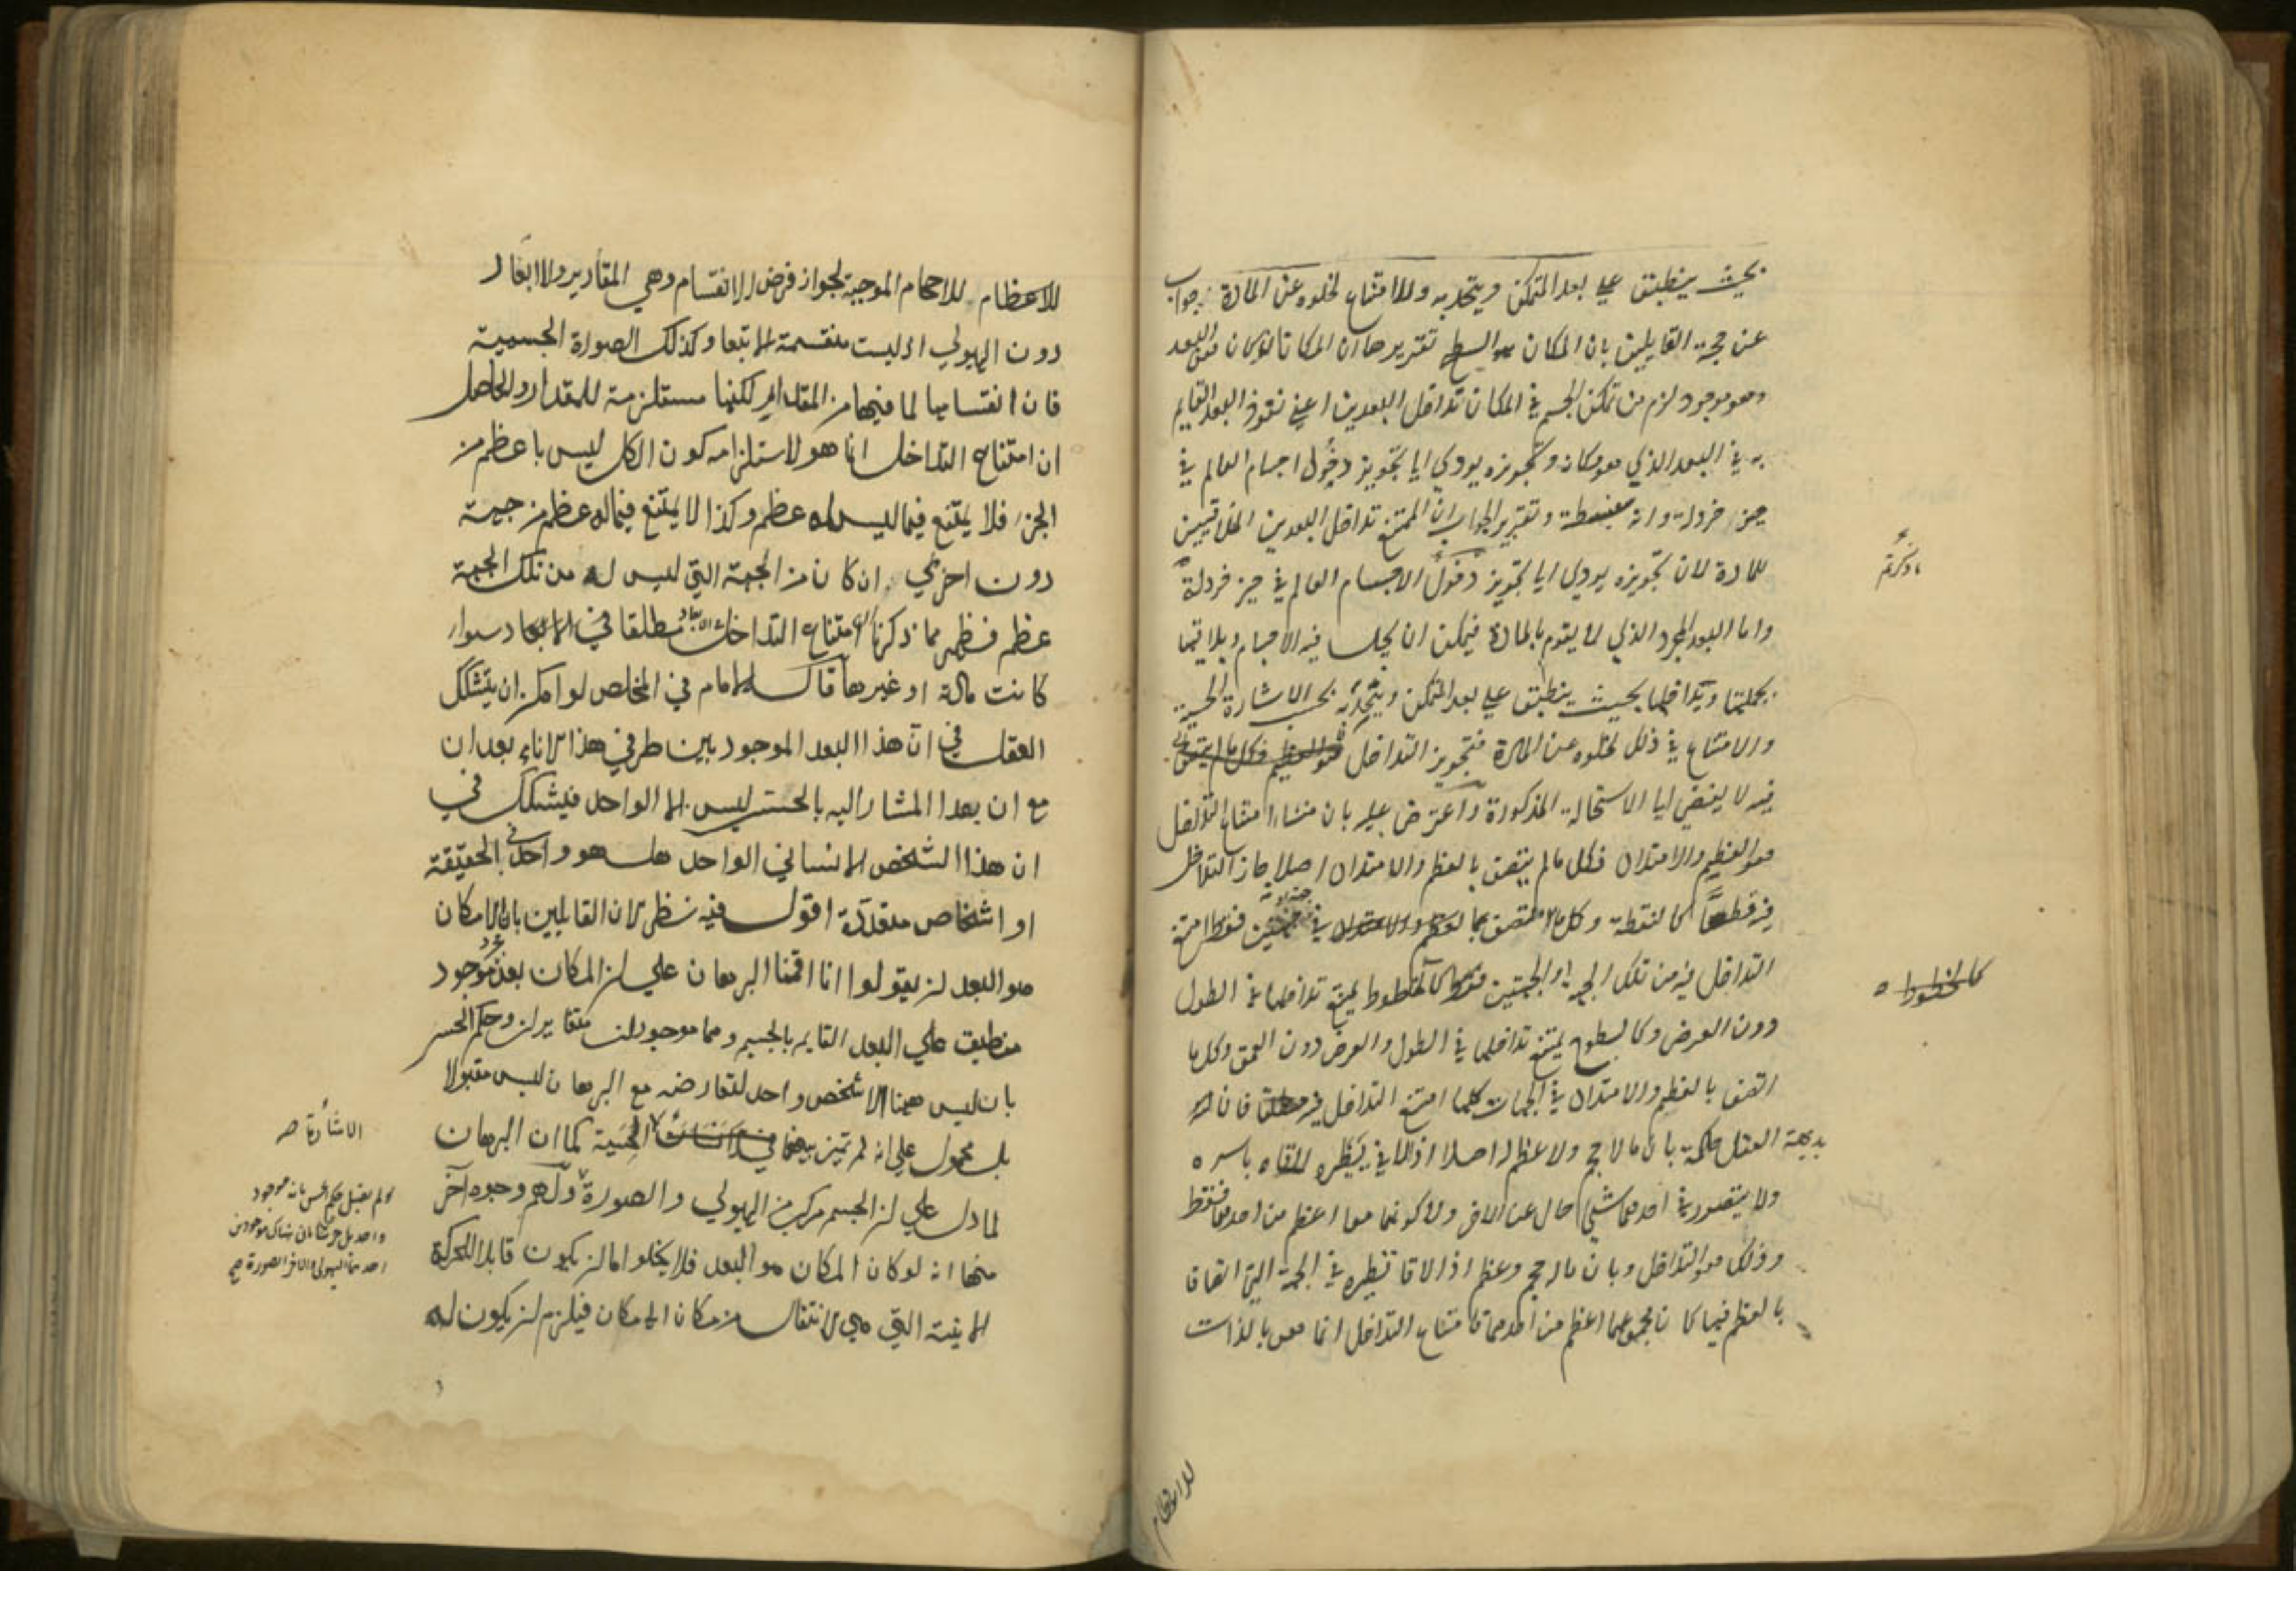 بحيث ينطبق علي بعد المتمكن ويتحد به والامتناع لخلوه عن المادة جواب
عن حجة القايلين بان المكان هو السطح تقريرها ان المكان لو كان هو البعد
وهو موجود لزم من تمكن الجسم في المكان تداخل البعدين اعني نفوذ البعد القايم
به في البعد الذي هو مكانه وتجويزه يودي الي تجويز دخول اجسام العالم في
حيز خردلة وانه سفسطة وتقرير الجواب ان الممتنع تداخل البعدين الملاقيين
للمادة لان تجويزه يودي الي تجويز دخول الاجسام العالم في حيز خردلة
واما البعد المجرد الذي لا يقوم بالمادة فيمكن ان يحل فيه الاجسام ويلاقيها
بجملتها ويداخلها بحيث ينطبق علي بعد المتمكن ويتحد به بحسب الاشارة الحسية
والامتناع في ذلك لخلوه عن المادة فتجويز التداخل
فيه لا يفضي الي الاستحالة المذكورة واعترض عليه بان منشاء امتناع التداخل
هو العظم والامتداد فكل ما لم يتصف بالعظم والامتداد اصلا جاز التداخل
فيه قطعا كالنقطة وكل ما اتصف بالعظم والامتداد في جهة او جهتين فقط امتنع
التداخل فيه من تلك الجهة او الجهتين فقط كالخطوط يمتنع تداخلها في الطول
دون العرض وكالسطوح يمتنع تداخلها في الطول والعرض دون العمق وكل ما
اتصف بالعظم والامتداد في الجهات كلها امتنع التداخل فيه مطلقا فان
بديهة العقل حاكمة بان ما لا حجم ولا عظم له اصلا اذا لاقي نظيره لاقاه باسره
ولا يتصور في احدهما شيئ خال عن الاخر ولا كونهما معا اعظم من احدهما فقط
وذلك هو التداخل وبان ما له حجم وعظم اذا لاقا نظيره في الجهة التي اتصافا
بالعظم فيها كان مجموعهما اعظم من احدهما فامتناع التداخل انما هو بالذات
ما ذكرتم
كالخطوط
للاعظام
للاعظام للاحجام الموجبة لجواز فرض الانقسام وهي المقادير والابعاد
دون الهيولي اذ ليست منقسمة الا تبعا وكذلك الصورة الجسمية
فان انقسامها لما فيها من المقدار لكنها مستلزمة للمقدار والحاصل
ان امتناع التداخل انما هو لاستلزامه كون الكل ليس باعظم من
الجزء فلا يمتنع فيما ليس له عظم وكذا لا يمتنع فيما له عظم من جهة
دون اخري ان كان من الجهة التي ليس له من تلك الجهة
عظم فظهر مما ذكرنا امتناع التداخل مطلقا في الابعاد سواء
كانت مادية او غيرها قال الامام في الملخص لو امكن ان يتشكك
العقل في ان هذا البعد الموجود بين طرفي هذا الاناء بعدان
مع ان بعدا المشار اليه بالحس ليس الا الواحد فيشكك في
ان هذا الشخص الانساني الواحد هل هو واحد في الحقيقة
او اشخاص متعددة اقول فيه نظر لان القايلين بان المكان
هو البعد لن يقولوا انا اقمنا البرهان علي ان المكان بعد موجود
منطبق علي البعد القايم بالجسم وهما موجودان متغايران وحكم الحس
بان ليس ههنا الا شخص واحد لتعارضه مع البرهان ليس مقبولا
بل محمول علي انه لم تميز بينهما في الحسية كما ان البرهان
لما دل علي ان الجسم مركب من الهيولي والصورة ولهم وجوه آخر
منها انه لو كان المكان هو البعد فلا يخلوا اما ان يكون قابلا للحركة
الاينية التي هي الانتقال من مكان الي مكان فيلزم ان يكون له
الاشارة صح
لم يقبل حكم الحس بانه موجود
واحد بل حكمنا بان هناك موجودين
احدهما الهيولي والاخر الصورة صح